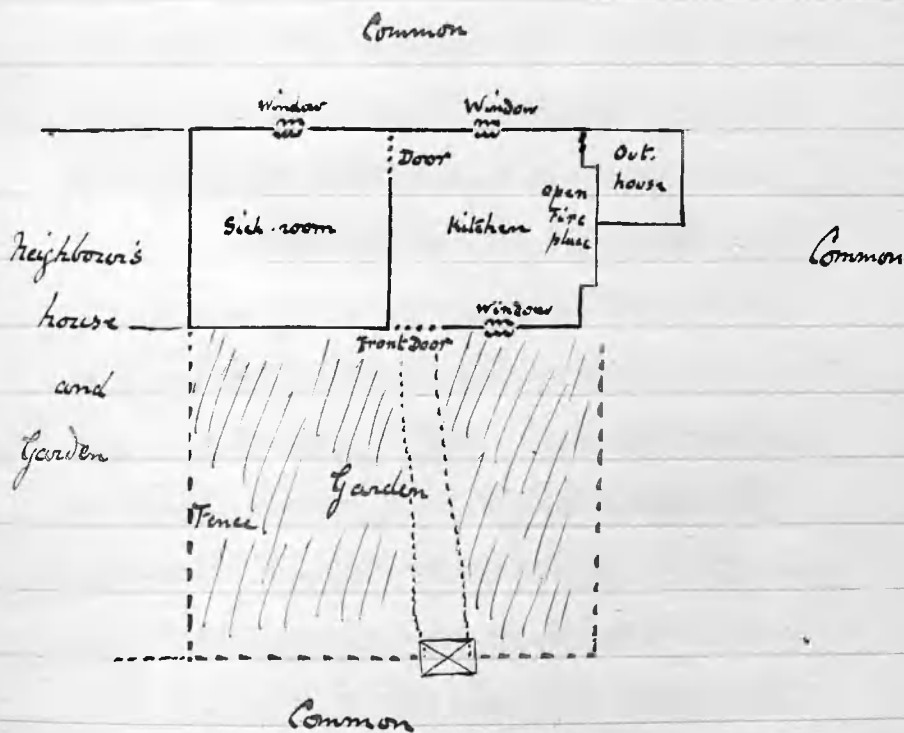 Common
Window
Window
Door
Out.
house
Sick-room
Kitchen
open
Fire
place
Neighbour's
house
and
Garden
Common
Window
Front Door
Garden
Fence
Common